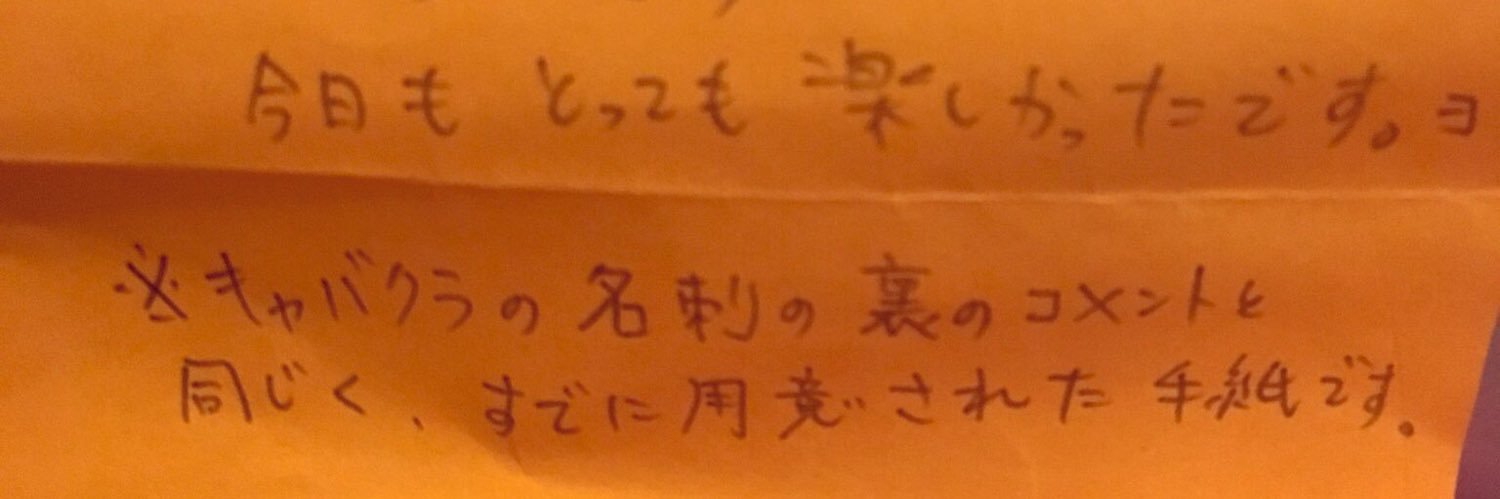 今日も とっても 楽しかったです。ヨ
※キャバクラの名刺の裏のコメントと
同じく、すでに用意された手紙です。